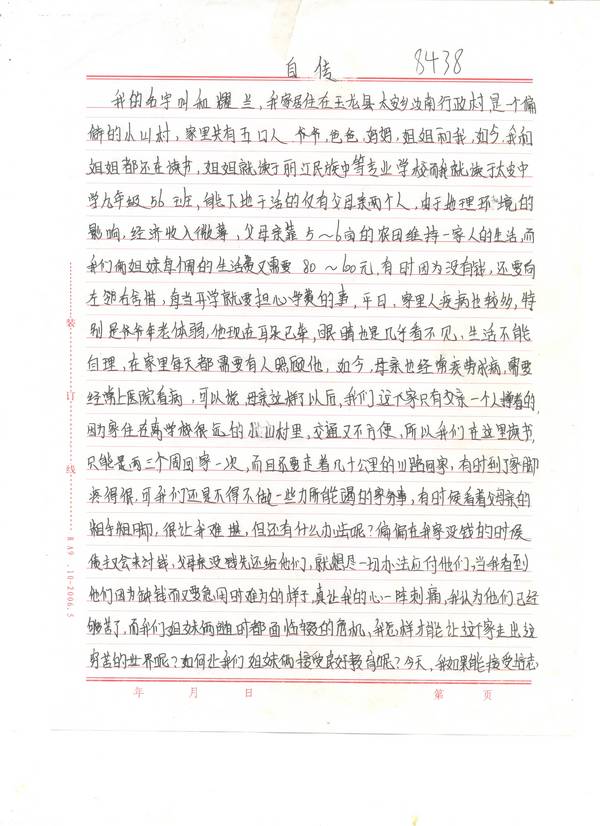 自传
8438
我的名字叫和耀兰，我家居住在玉龙县太安乡汝南行政村，是一个偏
僻的小山村，家里共有五口人 爷爷，爸爸，妈妈，姐姐和我，如今，我和
姐姐都还在读书，姐姐就读于丽江民族中等专业学校而我就读于太安中
学九年级56班，能下地干活的仅有父母亲两个人，由于地理环境的
影响，经济收入微薄，父母亲靠5～6亩的农田维持一家人的生活，而
我们俩姐妹每个周的生活费又需要80～100元，有时因为没有钱，还要向
左邻右舍借，每当开学就要担心学费的事，平日，家里人疾病也较多，特
别是爷爷年老体弱，他现在耳朵已聋，眼睛也是几乎看不见，生活不能
自理，在家里每天都需要有人照顾他，如今，母亲也经常疾劳成病，需要
经常上医院看病，可以说，母亲这样了以后，我们这个家只有父亲一个人撑着的，
因为家住在离学校很远的小山村里，交通又不方便，所以我们在这里读书，
只能是两三个周回家一次，而且还要走着几十公里的山路回家，有时到了家脚
疼得很，可我们还是不得不做一些力所能竭的家务事，有时候看着父母亲的
粗手粗脚，很让我难堪，但还有什么办法呢？偏偏在我家没钱的时候
债主又会来讨钱，父母亲没钱先还给他们，就想尽一切办法应付他们，当我看到
他们因为缺钱而又要急用时难为的样子，真让我的心一阵刺痛，我认为他们已经
够苦了，而我们姐妹俩随时都面临辍的危机，我怎样才能让这个家走出这
穷苦的世界呢？如何让我们姐妹俩接受良好教育呢？今天，我如果能接受
装
订
线
BA9．10-2006.5
年 月 日 第 页